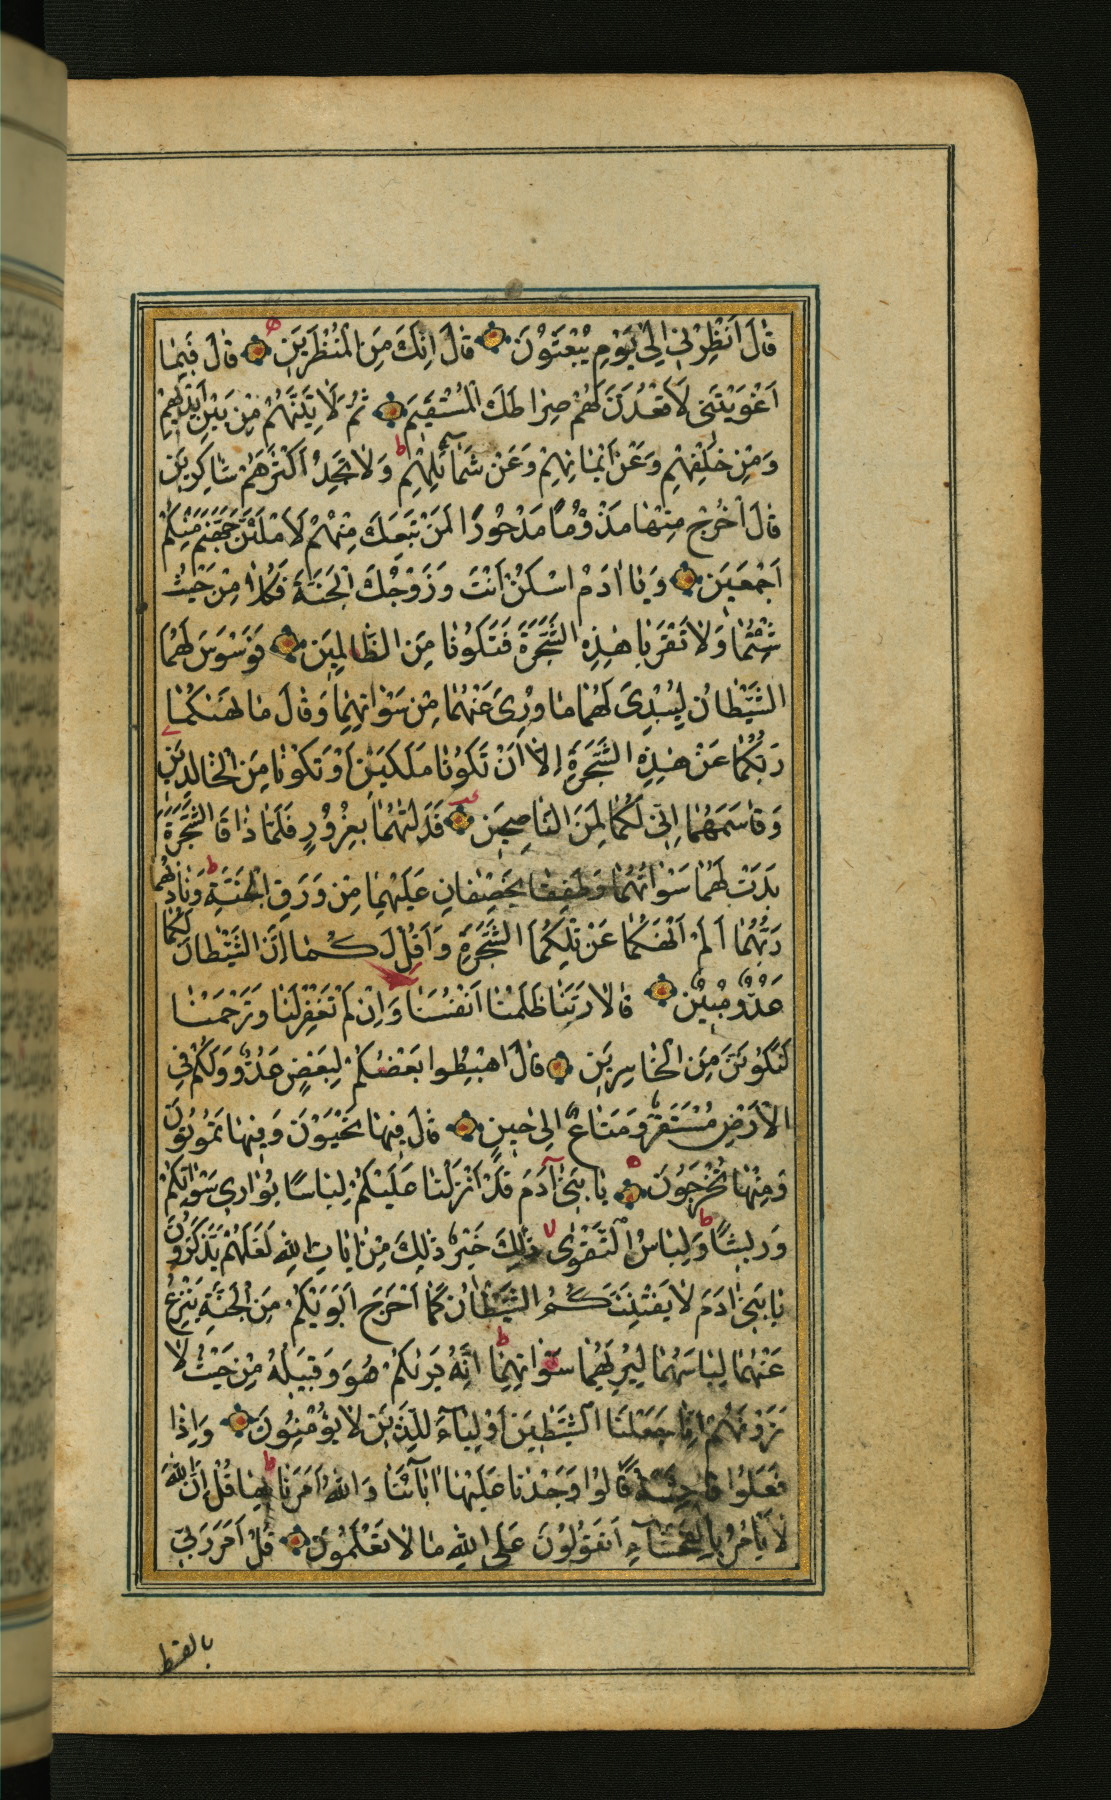 قَالَ اَنْظِرْنِي اِلٰى يَوْمِ يُبْعَثُوْنَ قَالَ اِنَّكَ مِنَ الْمُنْظَرِيْنَ قَالَ فَبِمَا
اَغْوَيْتَنِى لَاَقْعُدَنَّ لَهُمْ صِرَاطَكَ الْمُسْتَقِيْمَ ثُمَّ لَاٰتِيَنَّهُمْ مِنْ بَيْنِ اَيْدِيْهِمْ
وَمِنْ خَلْفِهِمْ وَعَنْ اَيْمَانِهِمْ وَعَنْ شَمَائِلِهِمْ ط وَلَا تَجِدُ اَكْثَرَهُمْ شَاكِرِيْنَ
قَالَ اخْرُجْ مِنْهَا مَذْؤُمًا مَدْحُورًا لَمَنْ تَبِعَكَ مِنْهُمْ لَاَمْلَئَنَّ جَهَنَّمَ مِنْكُمْ
اَجْمَعِيْنَ وَيَا اٰدَمُ اسْكُنْ اَنْتَ وَزَوْجُكَ الْجَنَّةَ فَكُلَا مِنْ حَيْثُ
شِئْتُمَا وَلَا تَقْرَبَا هٰذِهِ الشَّجَرَةَ فَتَكُونَا مِنَ الظَّالِمِيْنَ فَوَسْوَسَ لَهُمَا
الشَّيْطَانُ لِيُبْدِىَ لَهُمَا مَا وُرِىَ عَنْهُمَا مِنْ سَوْاٰتِهِمَا وَقَالَ مَا نَهٰىكُمَا
رَبُّكُمَا عَنْ هٰذِهِ الشَّجَرَةِ اِلَّا اَنْ تَكُونَا مَلَكَيْنِ اَوْ تَكُونَا مِنَ الْخَالِدِيْنَ
وَقَاسَمَهُمَا اِنِّى لَكُمَا لَمِنَ النَّاصِحِيْنَ فَدَلّٰىهُمَا بِغُرُورٍ فَلَمَّا ذَاقَا الشَّجَرَةَ
بَدَتْ لَهُمَا سَوْاٰتُهُمَا وَطَفِقَا يَخْصِفَانِ عَلَيْهِمَا مِنْ وَرَقِ الْجَنَّةِ ط وَنَادٰىهُمَا
رَبُّهُمَا اَلَمْ اَنْهَكُمَا عَنْ تِلْكُمَا الشَّجَرَةِ وَاَقُلْ لَكُمَا اِنَّ الشَّيْطَانَ لَكُمَا
عَدُوٌّ مُبِيْنٌ قَالَا رَبَّنَا ظَلَمْنَا اَنْفُسَنَا وَاِنْ لَمْ تَغْفِرْلَنَا وَتَرْحَمْنَا
لَنَكُوْنَنَّ مِنَ الْخَاسِرِيْنَ قَالَ اهْبِطُوا بَعْضُكُمْ لِبَعْضٍ عَدُوٌّ وَلَكُمْ فِى
الْاَرْضِ مُسْتَقَرٌّ وَمَتَاعٌ اِلٰى حِيْنٍ قَالَ فِيْهَا تَحْيَوْنَ وَفِيْهَا تَمُوْتُوْنَ
وَمِنْهَا تُخْرَجُوْنَ يَا بَنِى آدَمَ قَدْ اَنْزَلْنَا عَلَيْكُمْ لِبَاسًا يُوَارِى سَوْاٰتِكُمْ
وَرِيْشًا ط وَلِبَاسُ التَّقْوٰى لا ذٰلِكَ خَيْرٌ ذٰلِكَ مِنْ اٰيَاتِ اللّٰهِ لَعَلَّهُمْ يَذَّكَّرُوْنَ
يَا بَنِى اٰدَمَ لَا يَفْتِنَنَّكُمُ الشَّيْطَانُ كَمَا اَخْرَجَ اَبَوَيْكُمْ مِنَ الْجَنَّةِ يَنْزِعُ
عَنْهُمَا لِبَاسَهُمَا لِيُرِيَهُمَا سَوْاٰتِهِمَا ط اِنَّهُ يَرٰىكُمْ هُوَ وَقَبِيْلُهُ مِنْ حَيْثُ لَا
تَرَوْنَهُمْ اِنَّا جَعَلْنَا الشَّيٰطِيْنَ اَوْلِيَآءَ لِلَّذِيْنَ لَا يُؤْمِنُوْنَ وَاِذَا
فَعَلُوا فَاحِشَةً قَالُوا وَجَدْنَا عَلَيْهَا اٰبَآئَنَا وَاللّٰهُ اَمَرَنَا بِهَا ط قُلْ اِنَّ اللّٰهَ
لَا يَأْمُرُ بِالْفَحْشَآءِ اَتَقُوْلُوْنَ عَلَى اللّٰهِ مَا لَا تَعْلَمُوْنَ قُلْ اَمَرَ رَبِّى
بالقسط